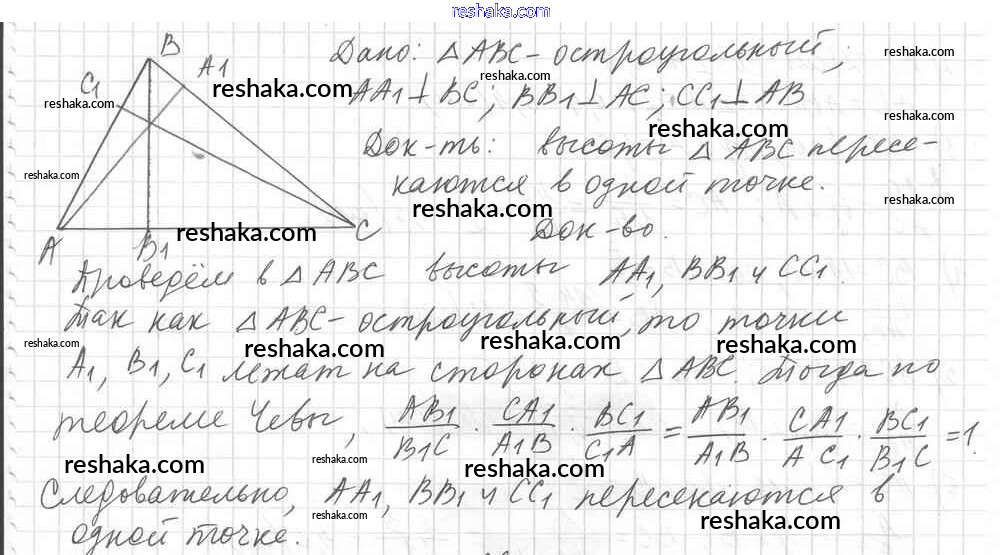 reshaka.com
Дано: △ABC - остроугольный;
AA1 ⊥ BC; BB1 ⊥ AC; CC1 ⊥ AB
Док-ть: высоты △ ABC пересе-
каются в одной точке.
Док-во.
B
A1
C1
A
B1
C
Проведём в △ABC высоты AA1, BB1 и CC1.
Так как △ABC - остроугольный, то точки
A1, B1, C1 лежат на сторонах △ABC. Тогда по
теореме Чевы, AB1/B1C · CA1/A1B · BC1/C1A = AB1/A1B · CA1/AC1 · BC1/B1C = 1.
Следовательно, AA1, BB1 и CC1 пересекаются в
одной точке.
reshaka.com
reshaka.com
reshaka.com
reshaka.com
reshaka.com
reshaka.com
reshaka.com
reshaka.com
reshaka.com
reshaka.com
reshaka.com
reshaka.com
reshaka.com
reshaka.com
reshaka.com
reshaka.com
reshaka.com
reshaka.com
reshaka.com